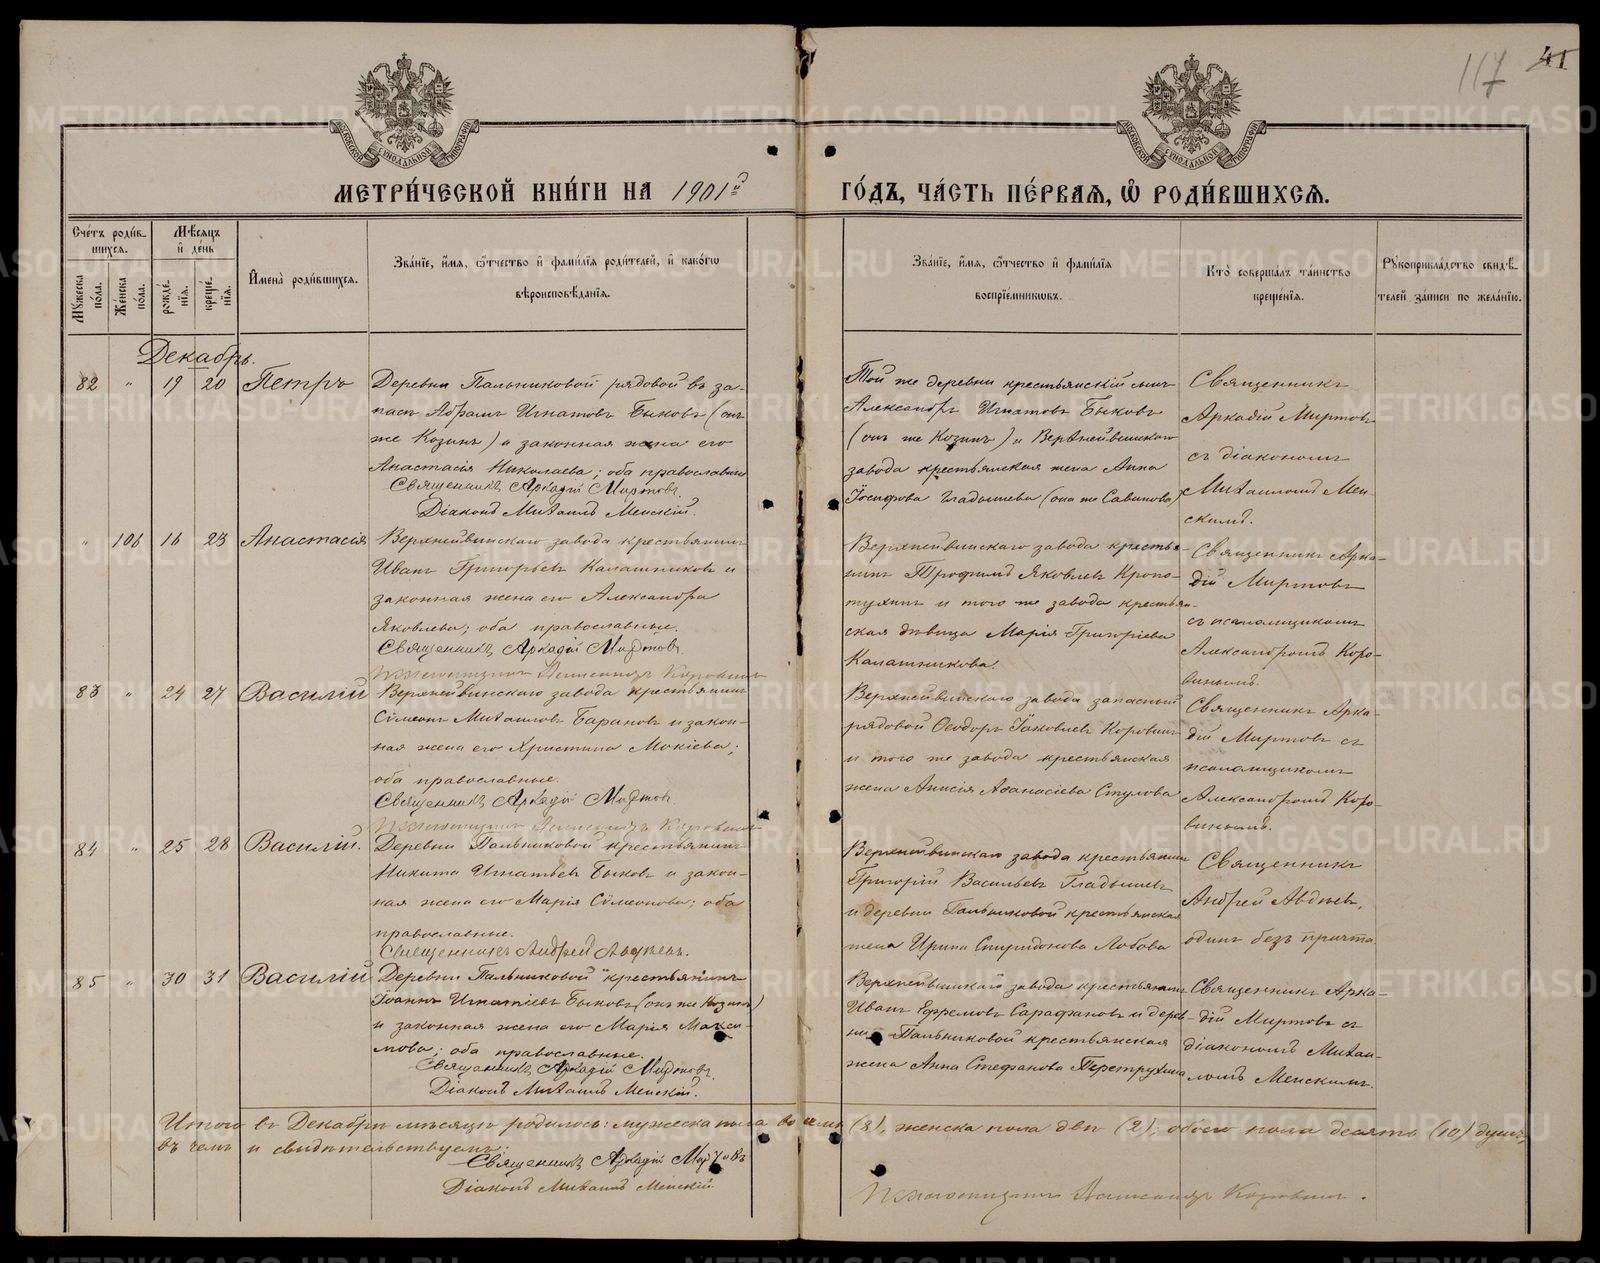 117 41
МОСКОВСКОЙ СѴНОДАЛЬНОЙ ТИПОГРАФІИ
МОСКОВСКОЙ СѴНОДАЛЬНОЙ ТИПОГРАФІИ
МЕТРИ́ЧЕСКОЙ КНИ́ГИ НА 1901й
ГО́ДЪ, ЧА́СТЬ ПЕ́РВАЯ, Ѡ РОДИ́ВШИХСЯ.
Сче́тъ роди́вшихся.
Мꙋжеска по́ла.
Же́нска по́ла.
Мѣ́сяцъ и де́нь
рожде́нїя.
креще́нїя.
И҆мена̀ роди́вшихся.
Зва́нїе, и҆́мя, ѻ҆́тчество и҆ фами́лїя роди́телей, и҆ како́гѡ
вѣроисповѣ́данїя.
Зва́нїе, и҆́мя, ѻ҆́тчество и҆ фами́лїя
воспрїе́мникѡвъ.
Кто̀ соверша́лъ та́инство
креще́нїя.
Рꙋкоприкла́дство свидѣ́телей за́писи по жела́нїю.
Декабрь.
82 " 19 20 Петръ
Деревни Пальниковой рядовой въ за-
пасѣ Абрамъ Игнатовъ Быковъ (онъ
же Козинъ) и законная жена его
Анастасія Николаева; оба православные
Священникъ Аркадій Миртовъ.
Діаконъ Михаилъ Менскій.
Той же деревни крестьянскій сынъ
Александръ Игнатовъ Быковъ
(онъ же Козинъ) и Верхнейвинскаго
завода крестьянская жена Анна
Іосифова Гладышева (она же Савинова)
Священникъ
Аркадій Миртовъ
съ діакономъ
Михаиломъ Мен-
скимъ.
" 106 16 23 Анастасія
Верхнейвинскаго завода крестьянинъ
Иванъ Григорьевъ Калашниковъ и
законная жена его Александра
Яковлева; оба православные.
Священникъ Аркадій Миртовъ.
Псаломщикъ Александръ Коровинъ
Верхнейвинскаго завода крестья-
нинъ Трофимъ Яковлевъ Кропо-
тухинъ и того же завода крестьян-
ская дѣвица Марія Григоріева
Калашникова.
Священникъ Арка-
дій Миртовъ
съ псаломщикомъ
Александромъ Коро-
винымъ.
83 " 24 27 Василій
Верхнейвинскаго завода крестьянинъ
Сѵмеонъ Михаиловъ Барановъ и закон-
ная жена его Христина Мокіева;
оба православные.
Священникъ Аркадій Миртовъ
Псаломщикъ Александръ Коровинъ
Верхнейвинскаго завода запасный
рядовой Ѳеодоръ Іаковлевъ Коровинъ
и того же завода крестьянская
жена Анисія Аѳанасіева Стулова
Священникъ Арка-
дій Миртовъ съ
псаломщикомъ
Александромъ Коро-
винымъ.
84 " 25 28 Василій.
Деревни Пальниковой крестьянинъ
Никита Игнатьевъ Быковъ и закон-
ная жена его Марія Сѵмеонова; оба
православные.
Священникъ Андрей Авдѣевъ.
Верхнейвинскаго завода крестьянинъ
Григорій Васильевъ Гладышевъ
и деревни Пальниковой крестьянская
жена Ирина Спиридонова Лобова
Священникъ
Андрей Авдѣевъ,
одинъ безъ причта.
85 " 30 31 Василій
Деревни Пальниковой крестьянинъ
Іоаннъ Игнатіевъ Быковъ (онъ же Козинъ)
и законная жена его Марія Макси-
мова; оба православные.
Священникъ Аркадій Миртовъ.
Діаконъ Михаилъ Менскій.
Верхнейвинскаго завода крестьянинъ
Иванъ Ефремовъ Сарафановъ и дерев-
ни Пальниковой крестьянская
жена Анна Стефанова Перетрухина
Священникъ Арка-
дій Миртовъ съ
діакономъ Михаи-
ломъ Менскимъ.
Итого въ Декабрѣ мѣсяцѣ родилось: мужеска пола восемь (8), женска пола двѣ (2); обоего пола десять (10) душъ,
въ чемъ и свидѣтельствуемъ:
Священникъ Аркадій Миртовъ
Діаконъ Михаилъ Менскій
Псаломщикъ Александръ Коровинъ.
METRIKI.GASO-URAL.RU